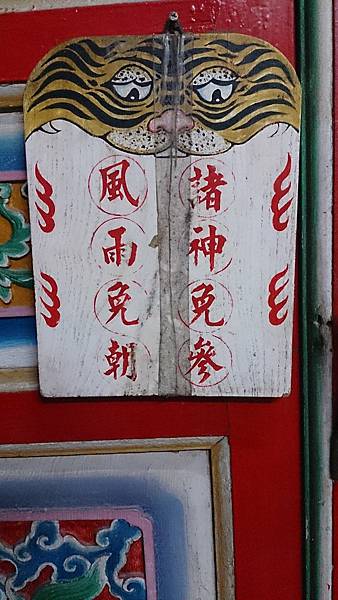 諸神免參
風雨免朝